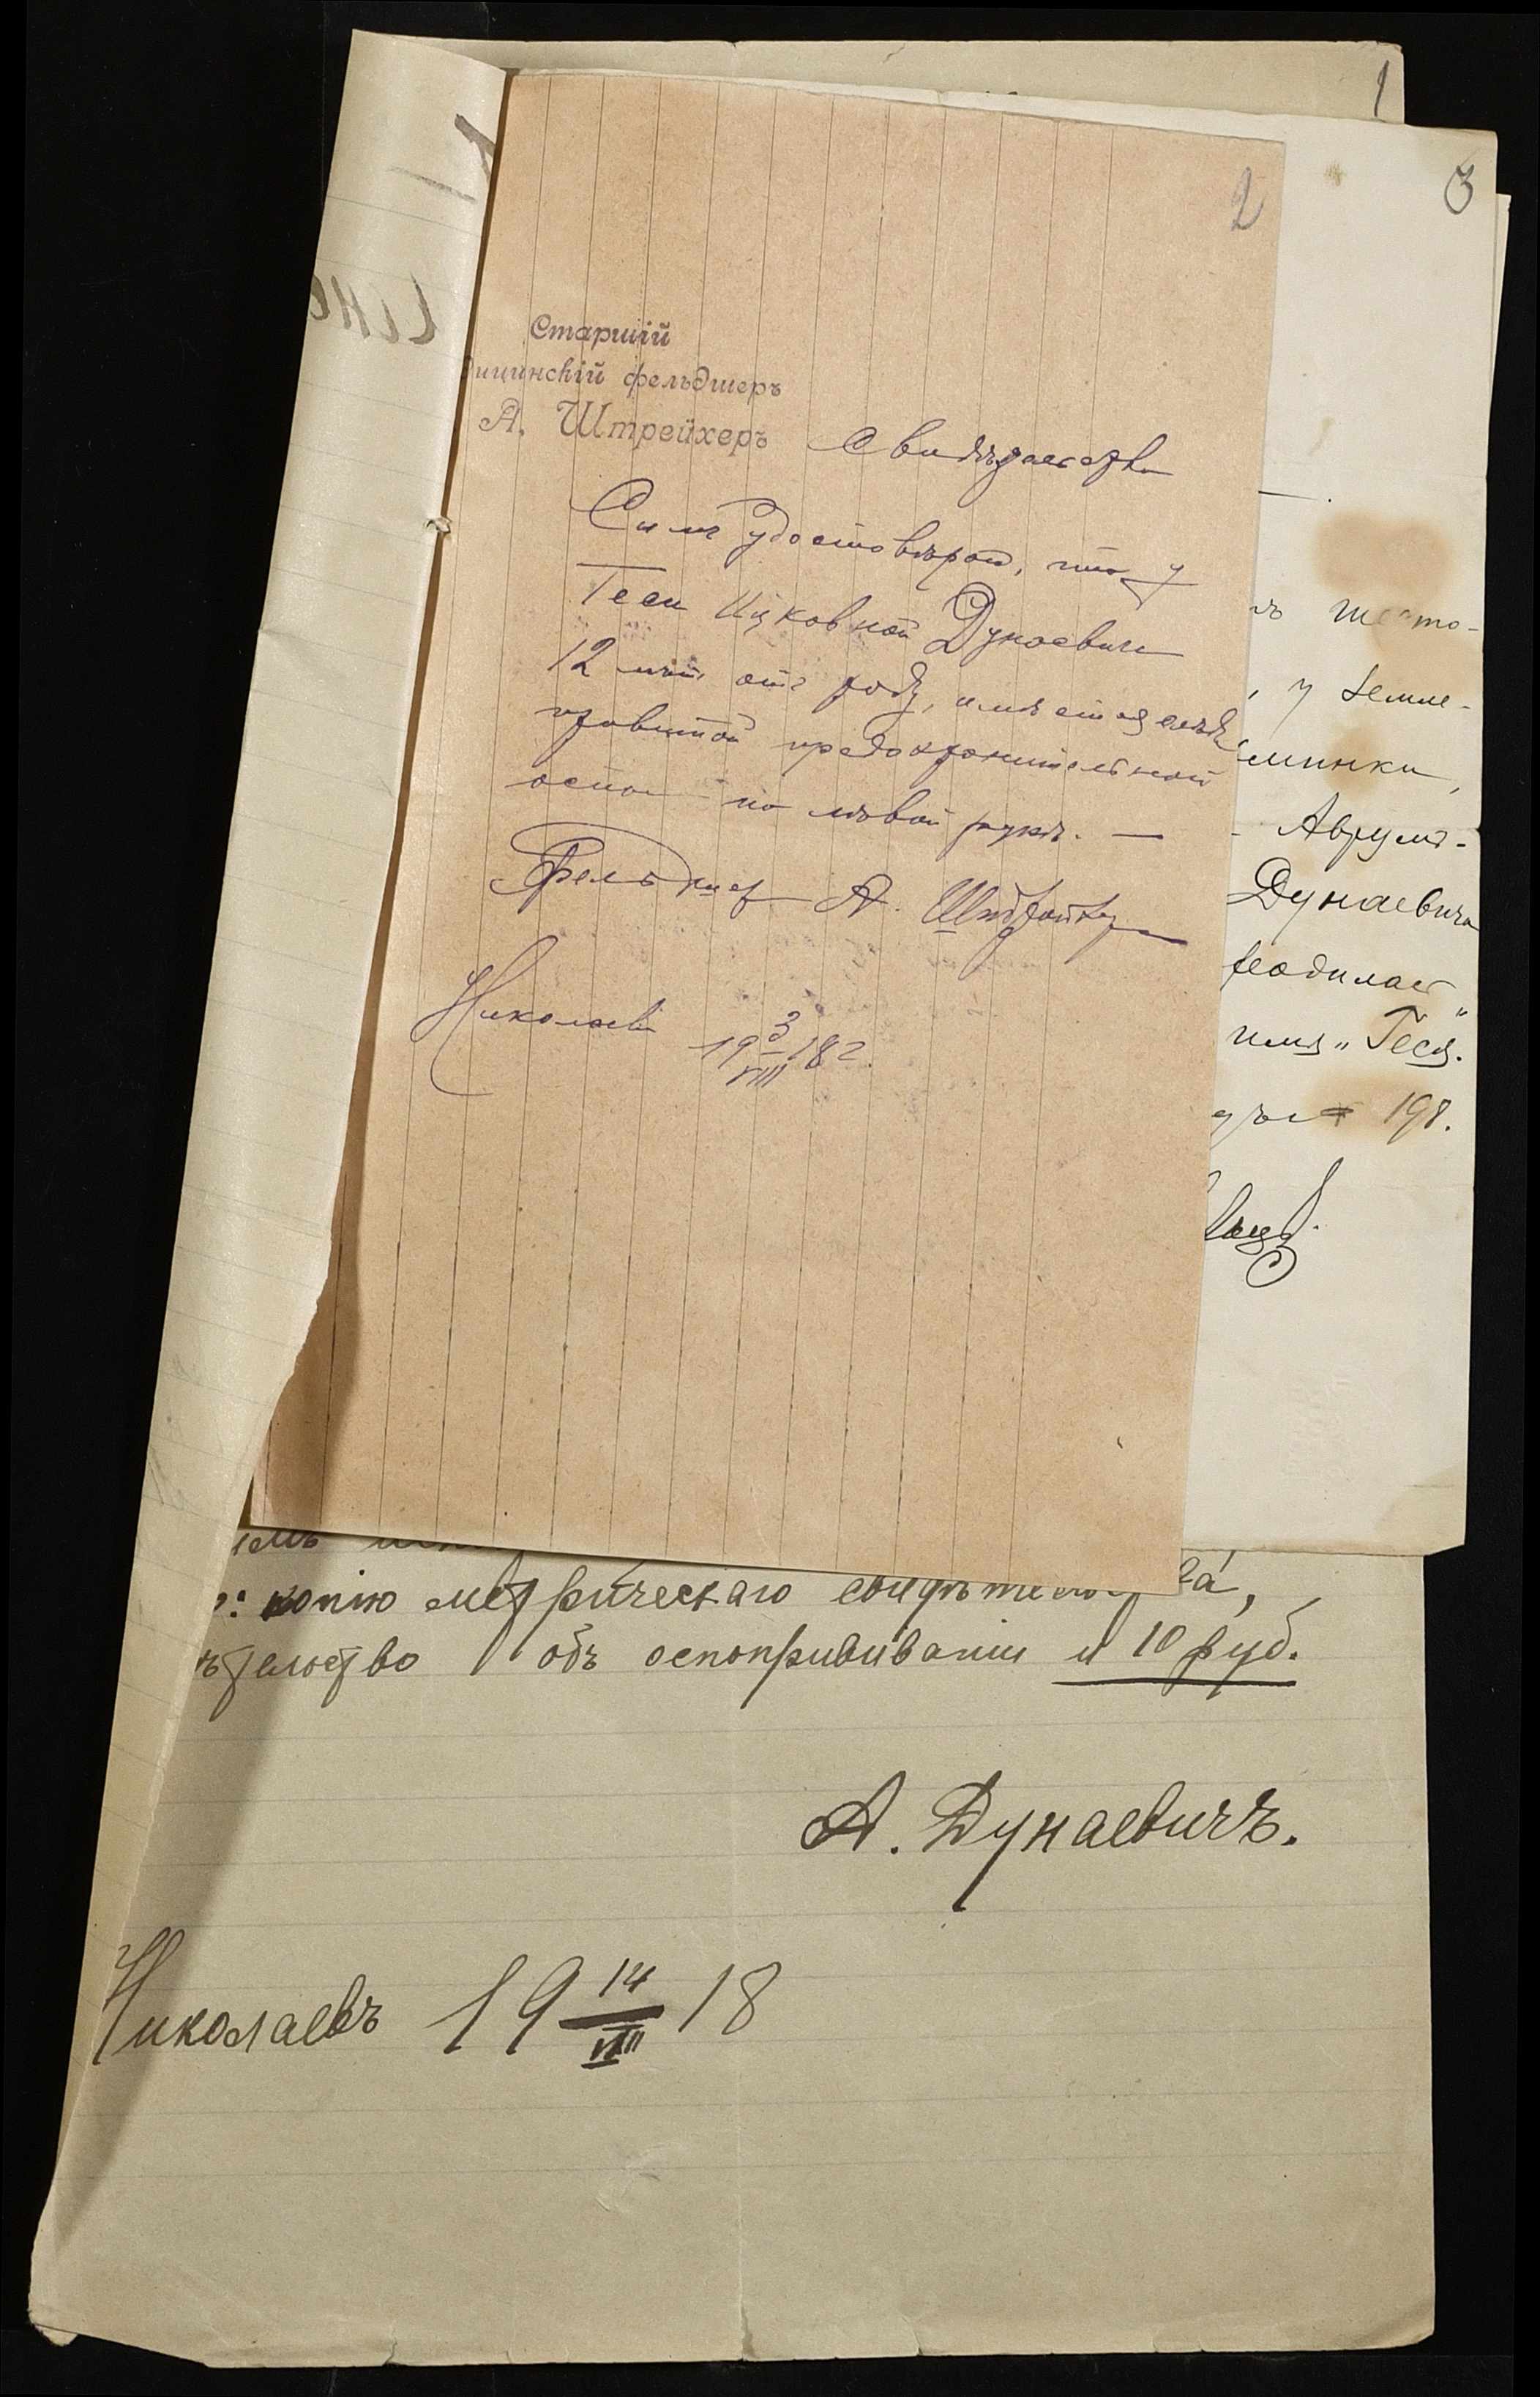 1
3
2
Старшій
дицинскій фельдшеръ
А. Штрейхеръ
Свидѣтельство
Симъ удостовѣряю, что у
Геси Ицковной Дунаевичъ
12 лѣтъ отъ роду, имѣется слѣды
привитой предохранительной
оспы на лѣвой рукѣ. —
Фельдшер А. Штрейхер
Николаевъ 19 3/VIII 18 г.
, у земле-
Аврумъ-
Дунаевича
родилась
имя „Геся."
198.
копію метрическаго свидѣтельства,
ѣтельство объ оспопрививаніи и 10 руб.
А. Дунаевичъ.
Николаевъ 19 14/VIII 18